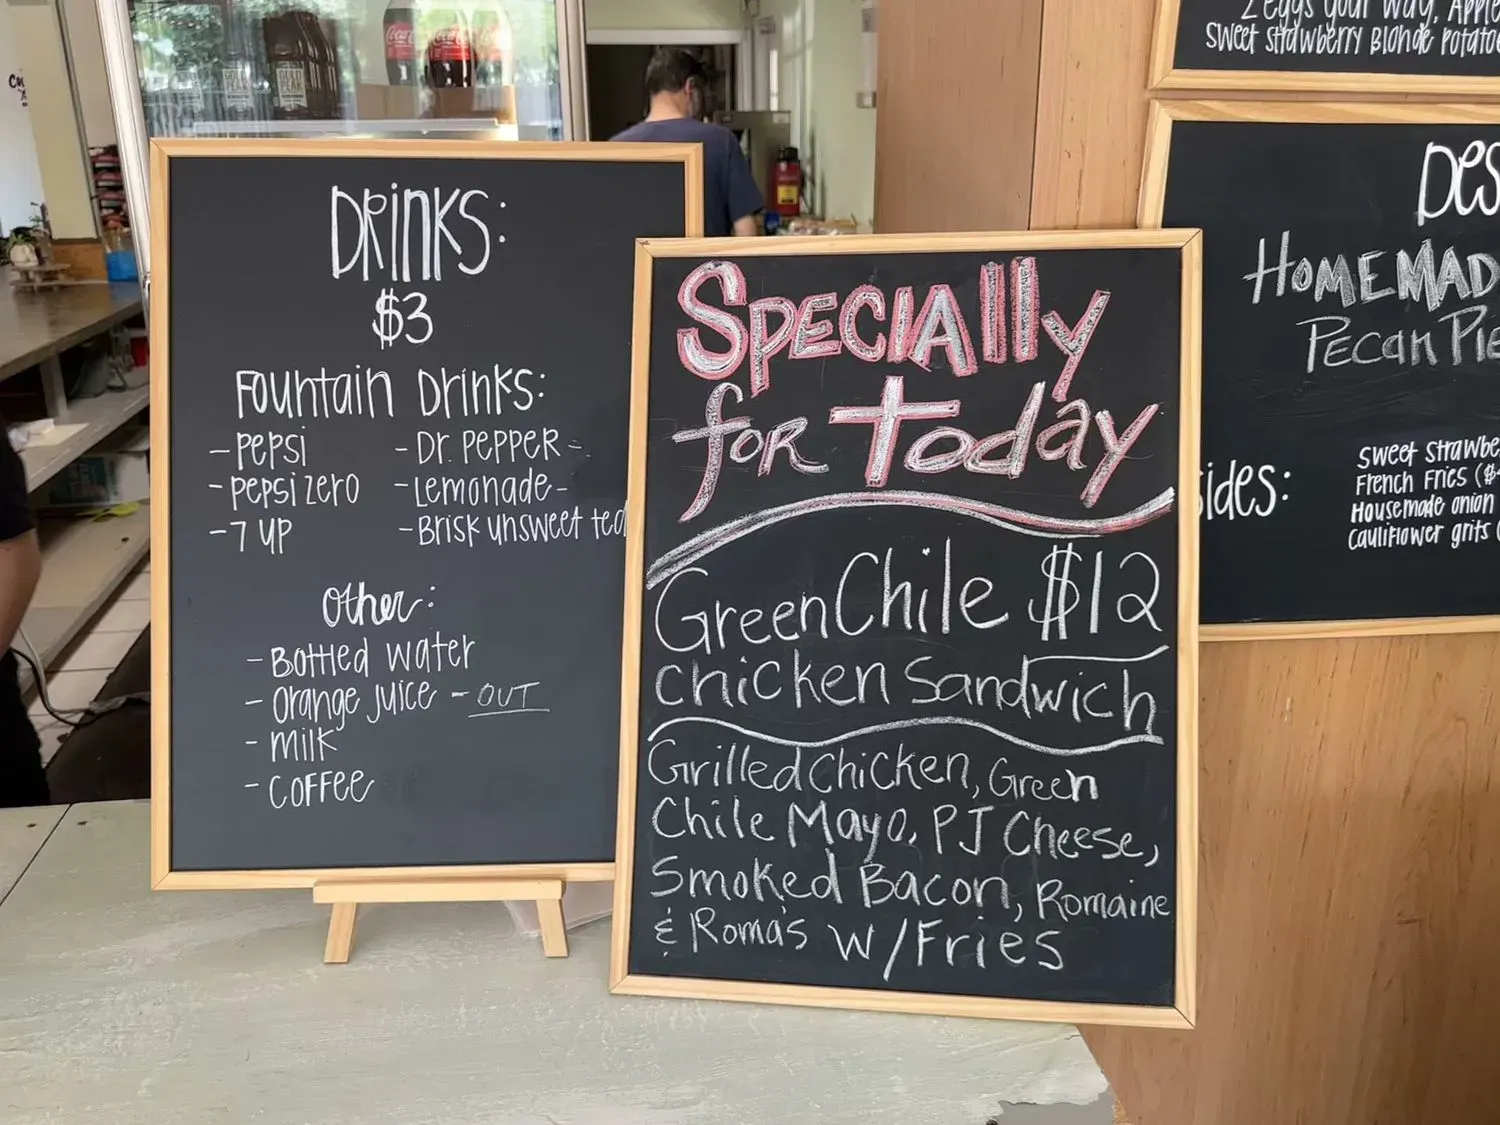 DRINKS:
$3
Fountain Drinks:
- Pepsi
- Pepsi Zero
- 7 UP
- Dr. PEPPER -
- Lemonade -
- Brisk unsweet tea
Other:
- Bottled water
- Orange Juice - OUT
- Milk
- Coffee
SPECIAlly
for today
Green Chile $12
Chicken Sandwich
Grilled Chicken, Green
Chile Mayo, PJ Cheese,
Smoked Bacon, Romaine
& Roma's W/Fries
2 eggs your way, Apple
Sweet strawberry Blonde Potato
Des
HOMEMAD
PECan Pie
ides:
Sweet Strawbe
French Fries ($
Housemade onion
Cauliflower grits (
Coca-Cola
PEAR